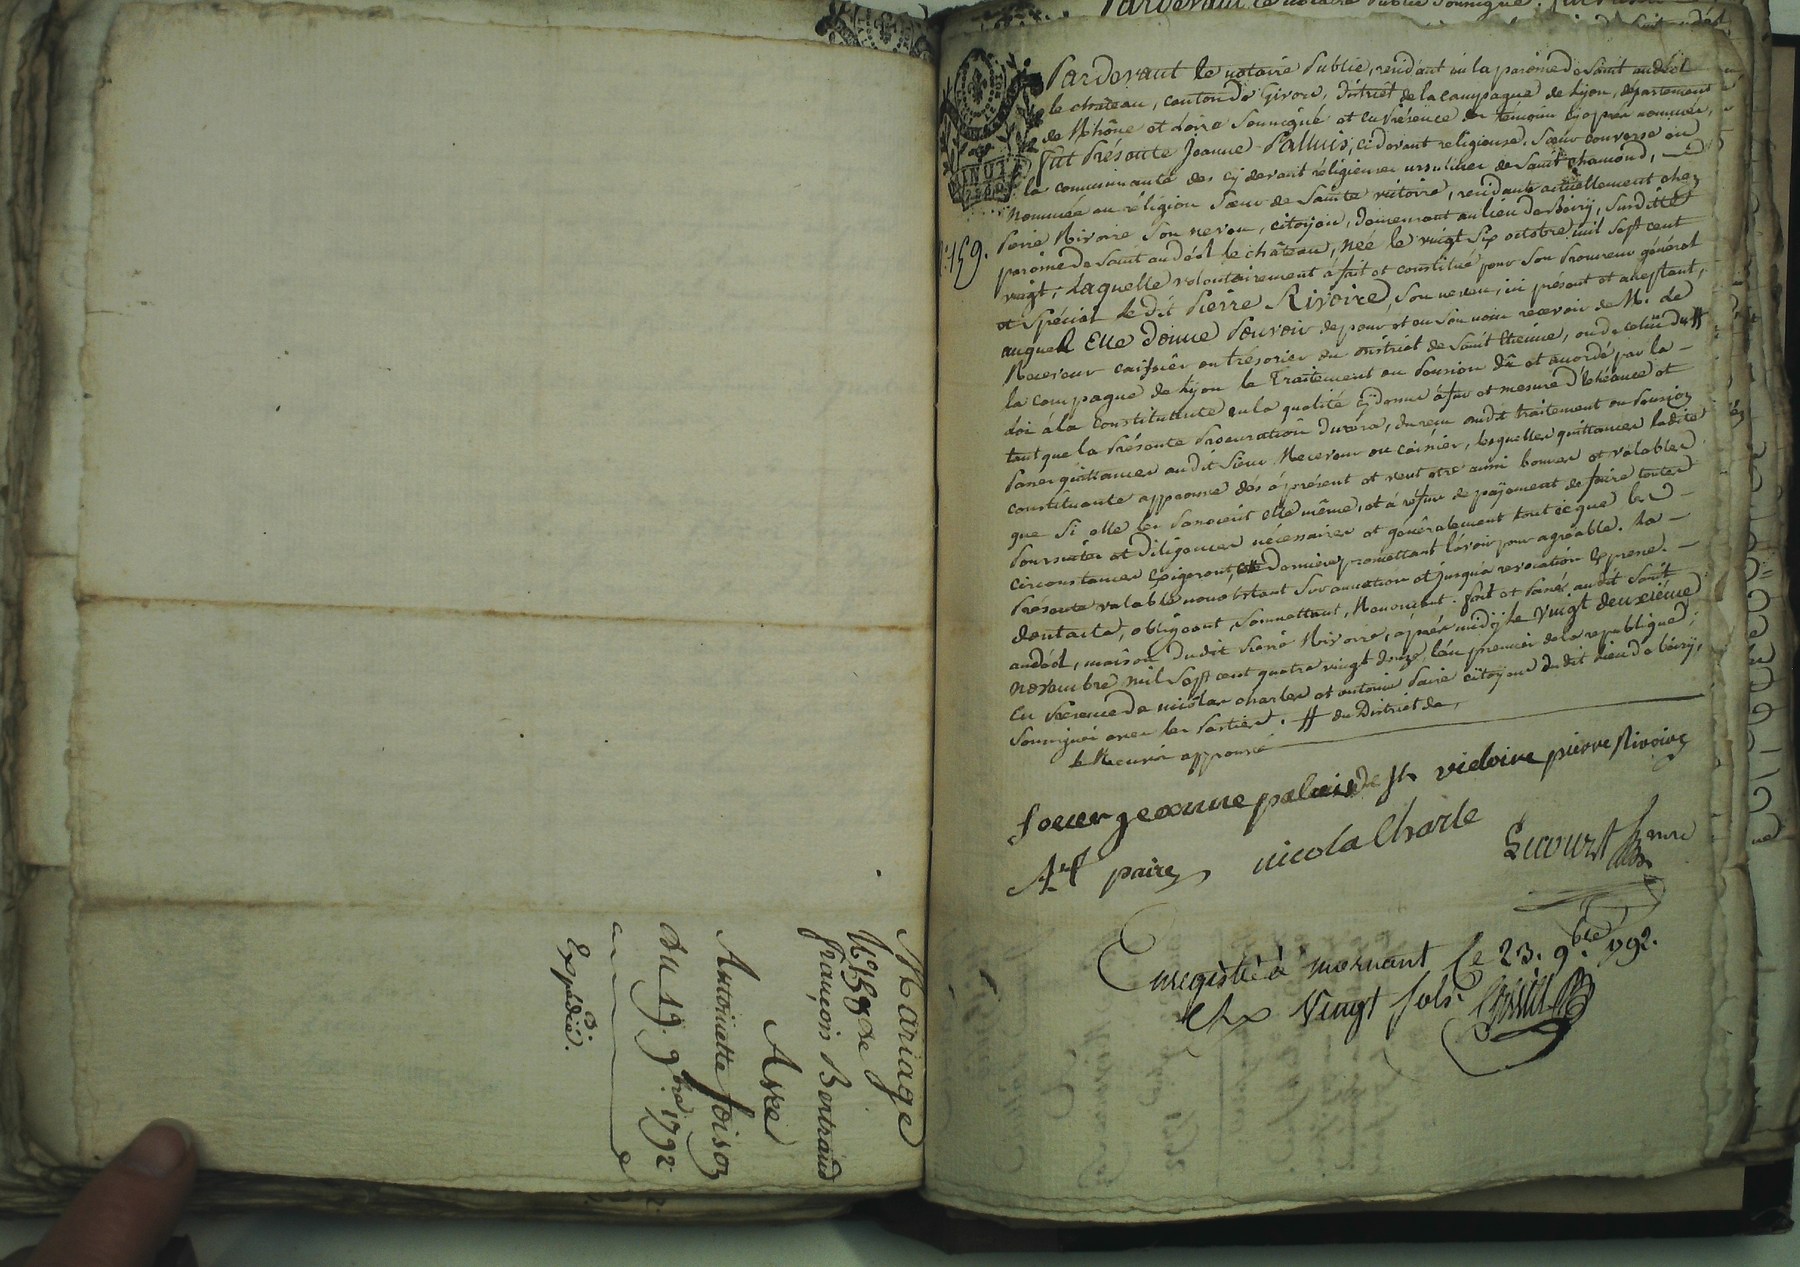 Mariage
N° 158 de
François Bertraud
Avec
Antoinette foison
du 19. 9bre 1792
Expédié.
Pardevant le notaire Public, residant en la paroisse de Saint andéol
le château, canton de Givors, District de la campagne de Lyon, département
de Rhône et Loire Soussigné et en Présence des témoins cy après nommés,
fut Présente Jeanne Palluis, ci devant religieuse Sœur converse en
la communauté des cy devant réligieuses ursulines de Saint chamond,
Nommée en religion Sœur de Sainte victoire, residante actuellement chez
Pierre Rivoire Son neveu, citoyen, demeurant au lieu de Bøirÿ, Surditte
paroisse de Saint andéol le château, née le vingt Six octobre mil Sept cent
vingt; Laquelle volontairement à fait et constitué pour Son Procureur général
et Spécial le dit Pierre Rivoire, Son neveu, ici présent et acceptant,
auquel Elle Donne Pouvoir de pour et en Son nom recevoir de M. le
Receveur caissier ou trésorier du District de Saint Etienne, ou de celui du #
la campagne de Lyon le Traitement ou Pension dû et accordé par la
Loi à la Constituante en la qualité cÿ dessus à fur et mesure d'Echéance et
tant que la Présente Procuration durera, du reçu dudit traitement ou Pension
Passer quittances audit Sieur Receveur ou caissier, lesquelles quittances ladite
constituante approuve dès àprésent et veut être aussi bonnes et valables
que Si elle les Passoient elle même, et à réfus de païement de faire toutes
Poursuites et Diligences nécessaires et généralement tout ce que les
circonstances Exigeront, cette Derniere promettant l'avoir pour agréable. La
Présente valable nonobstant Surannation et jusqu'a revocation Expresse.
Dont acte, obligeant, Soumettant, Renonçant. fait et Passé audit Saint
andéol, maison dudit Pierre Rivoire, après midÿ le vingt deuxiéme
novembre mil Sept cent quatre vingt douze, l'an premier de la republique,
En Présence de nicolas charles et antoine Paire citoyens dudit lieu de
Soussignés avec les Parties. # du District de,
le Renvoi approuvé
N°. 159.
soeur jeanne paluis de Ste victoire pierre Rivoire
Ant paire nicola Charle
Enregistré à mornant le 23. 9bre. 1792.
Vingt sols.